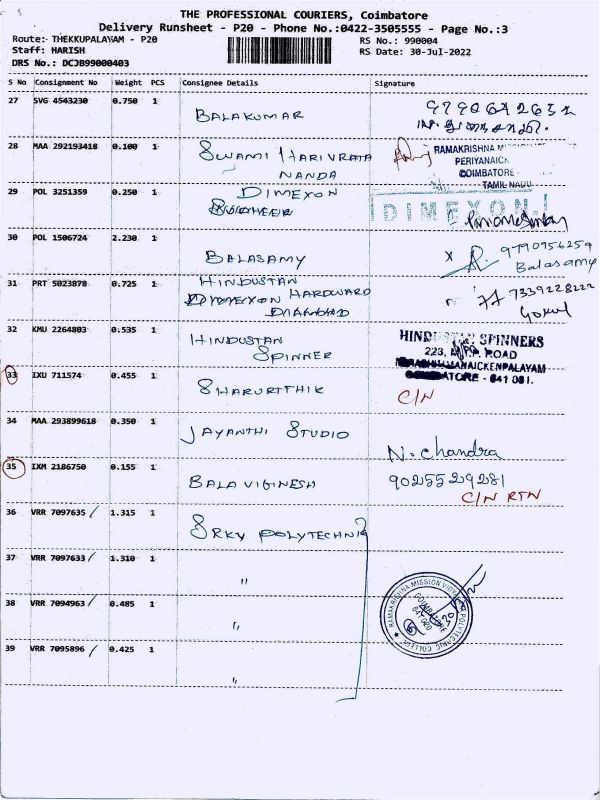 THE PROFESSIONAL COURIERS, Coimbatore
Delivery Runsheet - P20 - Phone No.:0422-3505555 - Page No.:3
Route: THEKKUPALAYAM - P20
RS No.: 990004
Staff: HARISH
RS Date: 30-Jul-2022
DRS No.: DCJB99000403
S No Consignment No Weight PCS Consignee Details Signature
27 SVG 4543230 0.750 1 BALAKUMAR
28 MAA 292193418 0.100 1 SWAMI HARIVRATA
NANDA
RAMAKRISHNA
PERIYANAICK
COIMBATORE
TAMIL NADU
29 POL 3251359 0.250 1 DIMEXON
DIMEXON
30 POL 1506724 2.230 1 BALASAMY
X 9790956259
Balasamy
31 PRT 5023878 0.725 1 HINDUSTAN
HARDWARD
7339228222
Gokul
32 KMU 2264803 0.535 1 HINDUSTAN
SPINNER
SPINNERS
223, ROAD
NAICKENPALAYAM
641 031.
33 IXU 711574 0.455 1 SHARURTHIK C/N
34 MAA 293899618 0.350 1 JAYANTHI STUDIO N. Chandra
35 IXM 2186750 0.155 1 BALA VIGINESH 9025529281
C/N RTN
36 VRR 7097635 / 1.315 1 SRKV POLYTECHNIC
37 VRR 7097633 / 1.310 1 "
38 VRR 7094963 / 0.485 1 "
RAMAKRISHNA MISSION VIDYALAYA POLYTECHNIC COLLEGE
COIMBATORE
641 020
39 VRR 7095896 / 0.425 1 "